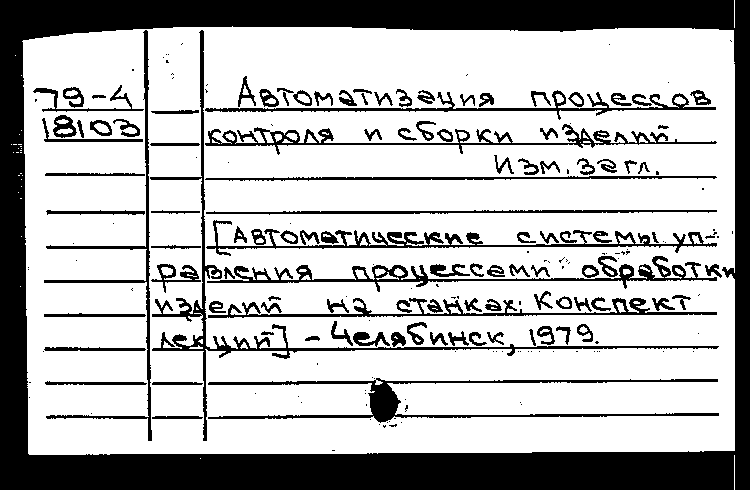 79-4 Автоматизация процессов
18103 контроля и сборки изделий.
Изм. загл.
[Автоматические системы уп-
равления процессами обработки
изделий на станках: Конспект
лекций] - Челябинск, 1979.